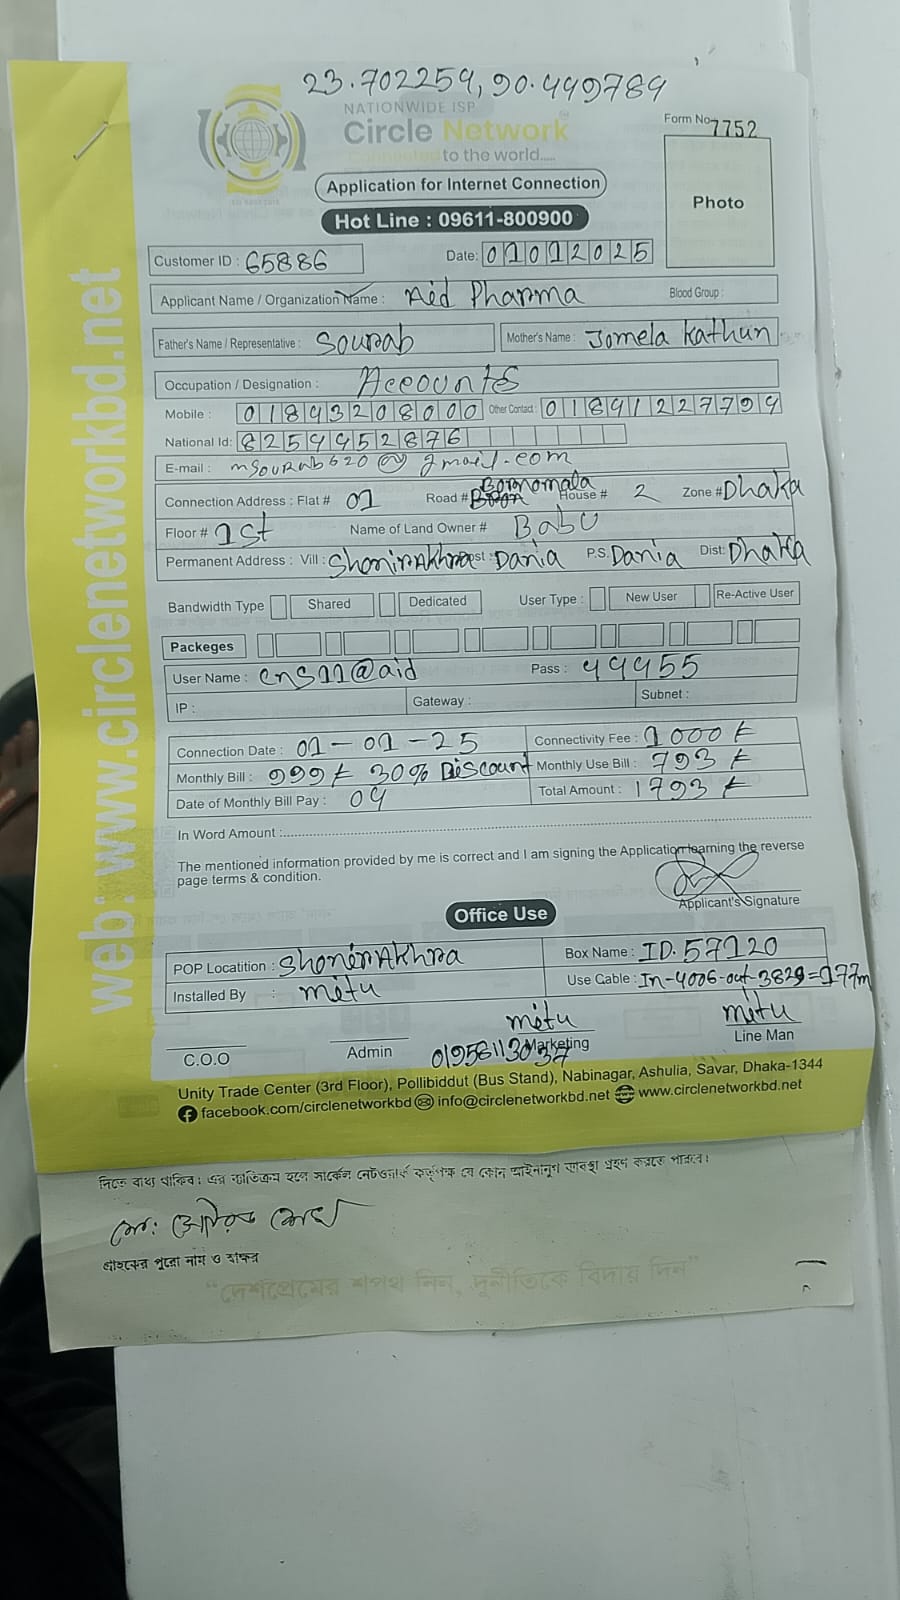 23.702259, 90.449789
NATIONWIDE ISP
Circle Network
Connected to the world.....
Form No 7752
Photo
Application for Internet Connection
Hot Line : 09611-800900
Customer ID : 65886
Date: 01012025
Applicant Name / Organization Name : Aid Pharma Blood Group :
Father's Name / Representative : Sourab Mother's Name : Jomela Kathun
Occupation / Designation : Accounts
Mobile : 01843208000 Other Contact : 01891227794
National Id: 8254452876
E-mail : msourab620@gmail.com
Connection Address : Flat # 01 Road # Bornomala House # 2 Zone # Dhaka
Floor # 1st Name of Land Owner # Babu
Permanent Address : Vill : ShonirAkhra Post : Dania P.S. Dania Dist: Dhaka
Bandwidth Type Shared Dedicated User Type : New User Re-Active User
Packeges
User Name : cns11@aid Pass : 44455
IP : Gateway : Subnet :
Connection Date : 01-01-25 Connectivity Fee : 1000 ৳
Monthly Bill : 999৳ 30% Discount Monthly Use Bill : 793 ৳
Date of Monthly Bill Pay : 04 Total Amount : 1793 ৳
In Word Amount :
The mentioned information provided by me is correct and I am signing the Application learning the reverse
page terms & condition.
Applicant's Signature
Office Use
POP Locatition : ShonirAkhra Box Name : ID.57120
Installed By : mitu Use Cable : In-4006-out-3829=177m
mitu mitu
C.O.O Admin Marketing Line Man
01956113037
Unity Trade Center (3rd Floor), Pollibiddut (Bus Stand), Nabinagar, Ashulia, Savar, Dhaka-1344
facebook.com/circlenetworkbd info@circlenetworkbd.net www.circlenetworkbd.net
web: www.circlenetworkbd.net
দিতে বাধ্য থাকিব। এর ব্যতিক্রম হলে সার্কেল নেটওয়ার্ক কর্তৃপক্ষ যে কোন আইনানুগ ব্যবস্থা গ্রহণ করতে পারবে।
গ্রাহকের পুরো নাম ও স্বাক্ষর
“দেশপ্রেমের শপথ নিন, দুর্নীতিকে বিদায় দিন”